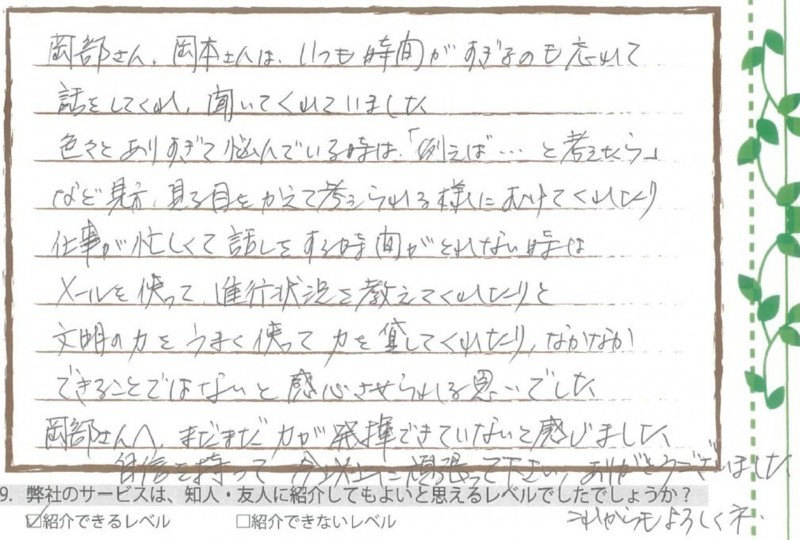 岡部さん、岡本さんは、いつも時間がすぎるのも忘れて
話をしてくれ、聞いてくれていました
色々とありすぎて悩んでいる時は、「例えば…と考えたら」
など見方、見る目をかえて考えられる様にむけてくれたり
仕事が忙しくて話しをする時間がとれない時は
メールを使って進行状況を教えてくれたりと
文明の力をうまく使って力を貸してくれたり、なかなか
できることではないと感心させられる思いでした
岡部さんへ、まだまだ力が発揮できていないと感じました
自信を持って今以上に頑張って下さい、ありがとうございました
9. 弊社のサービスは、知人・友人に紹介してもよいと思えるレベルでしたでしょうか？
☑紹介できるレベル　□紹介できないレベル　これからもよろしくネ